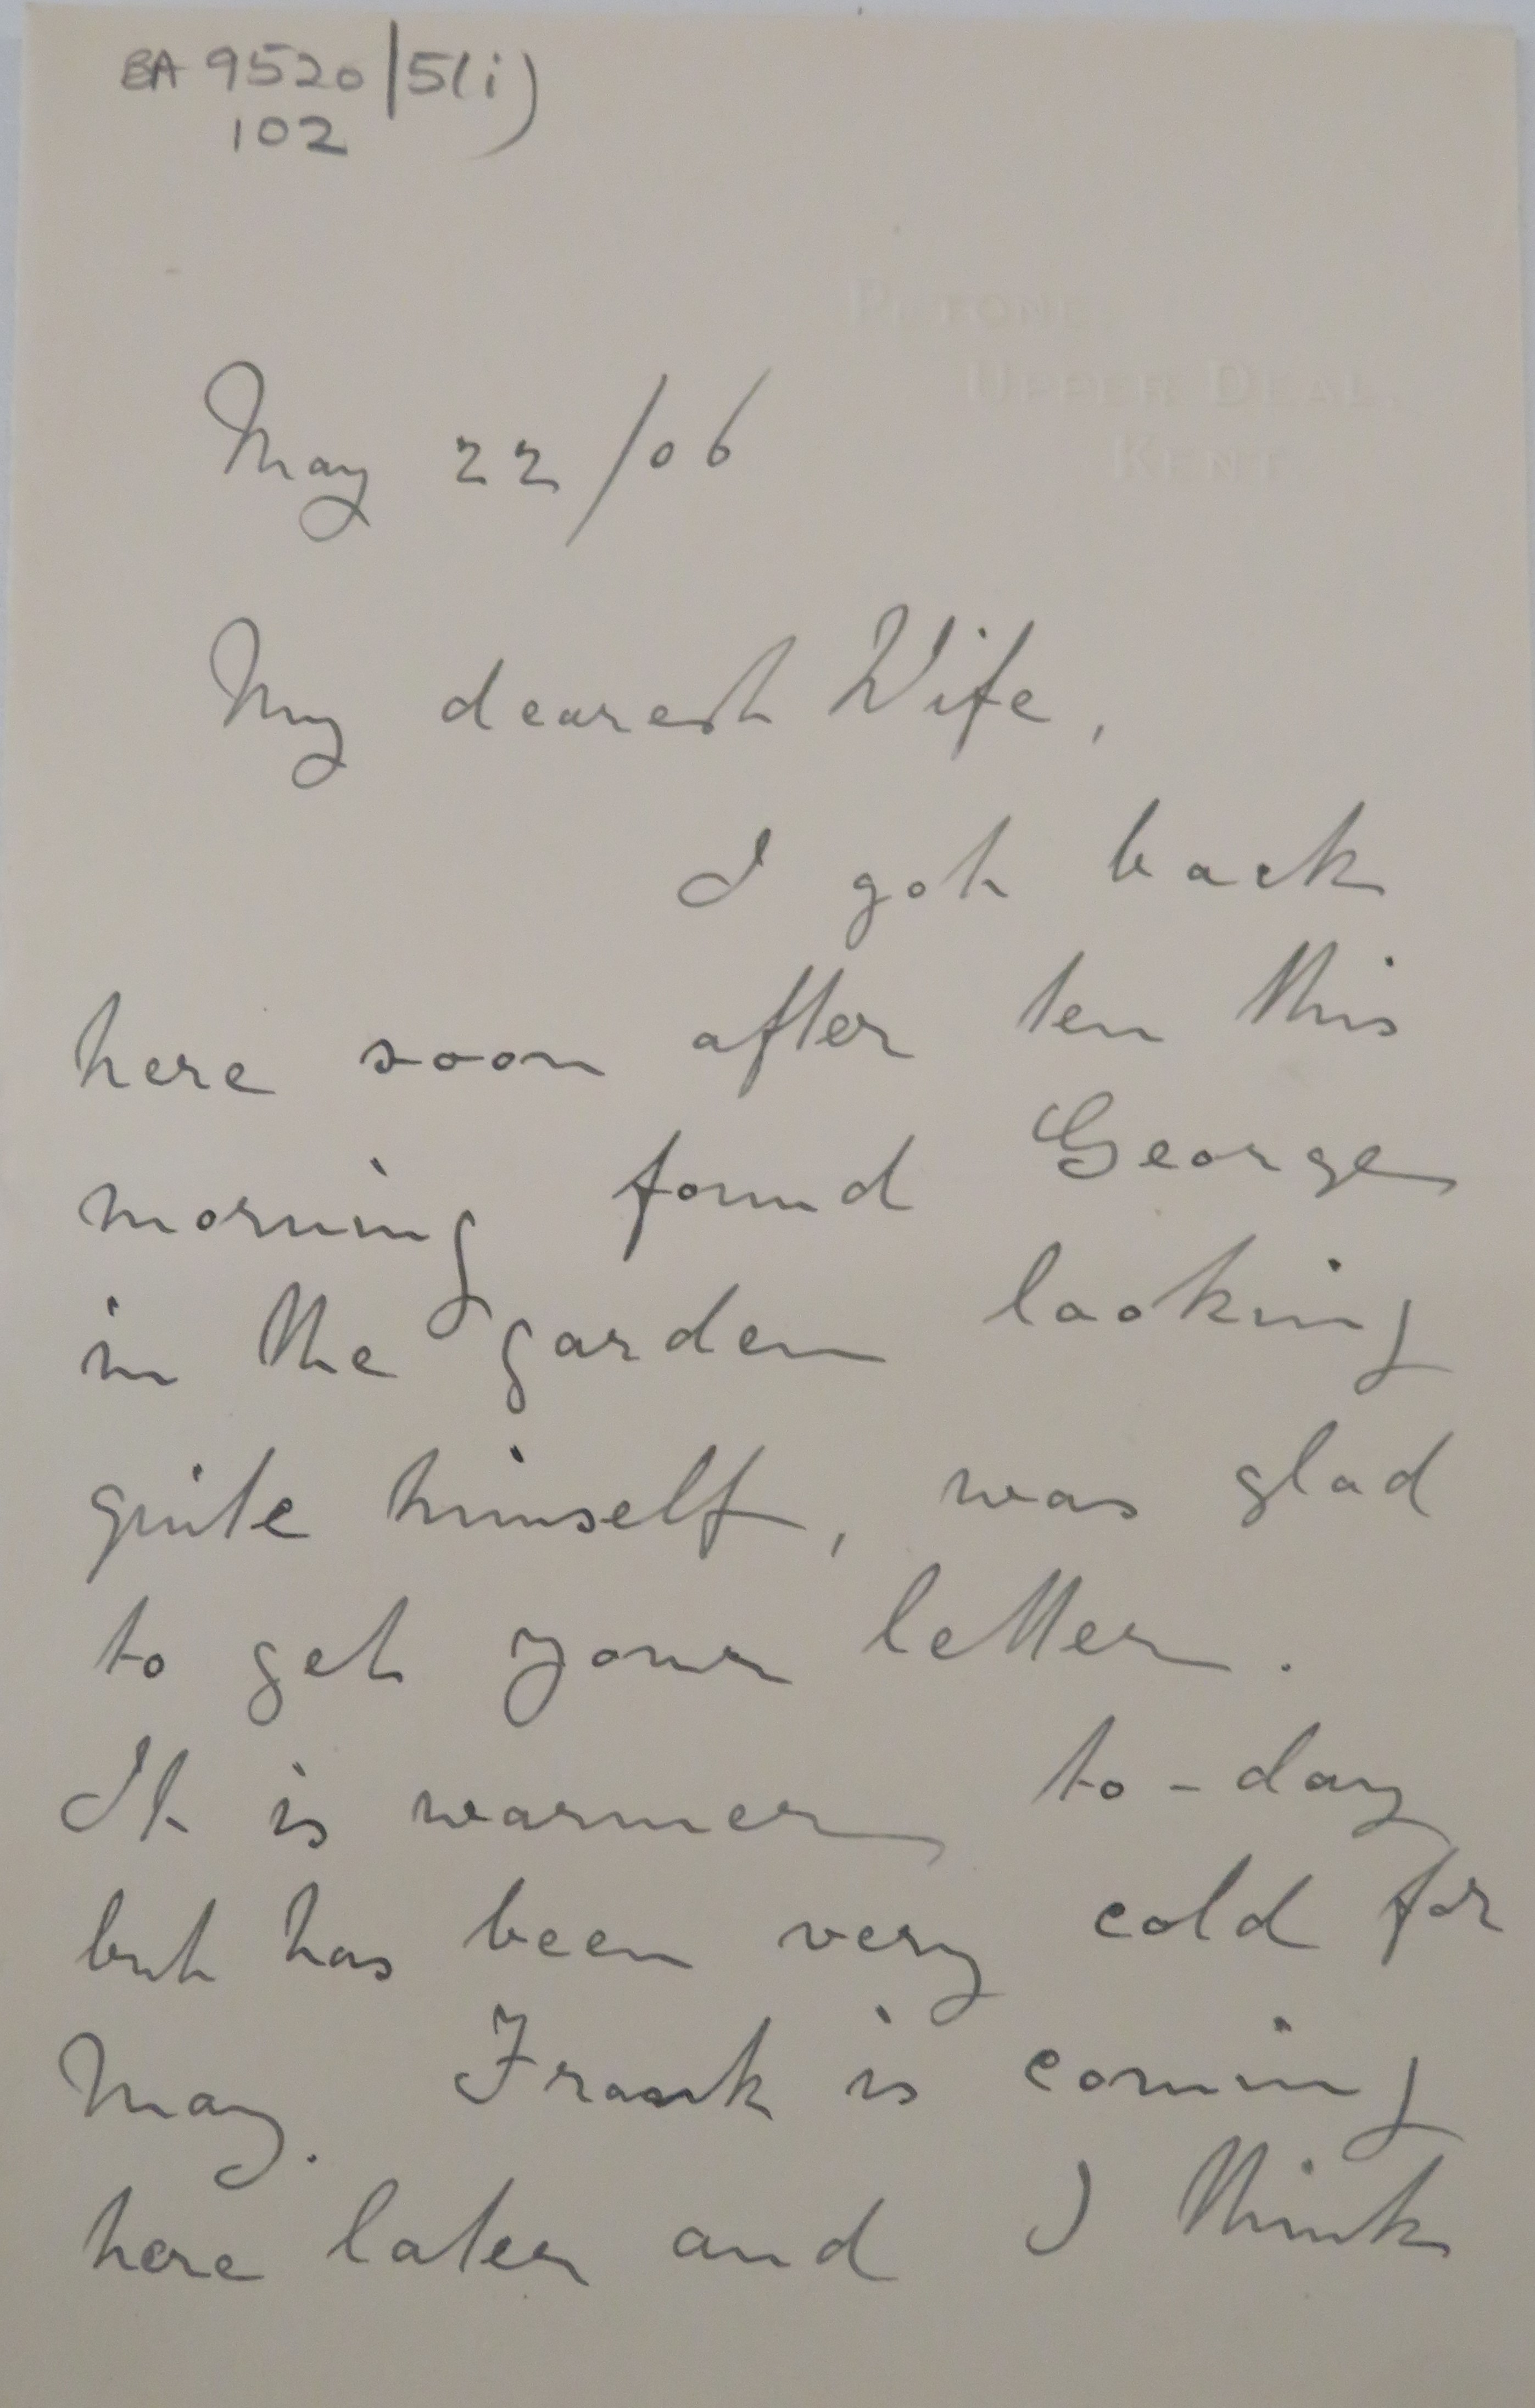 BA 9520/5(i)
102
PETONE,
UPPER DEAL,
KENT.
May 22/06
My dearest Wife,
I got back
here soon after ten this
morning found George
in the garden looking
quite himself, was glad
to get your letter.
It is warmer to-day
but has been very cold for
May. Frank is coming
here later and I think